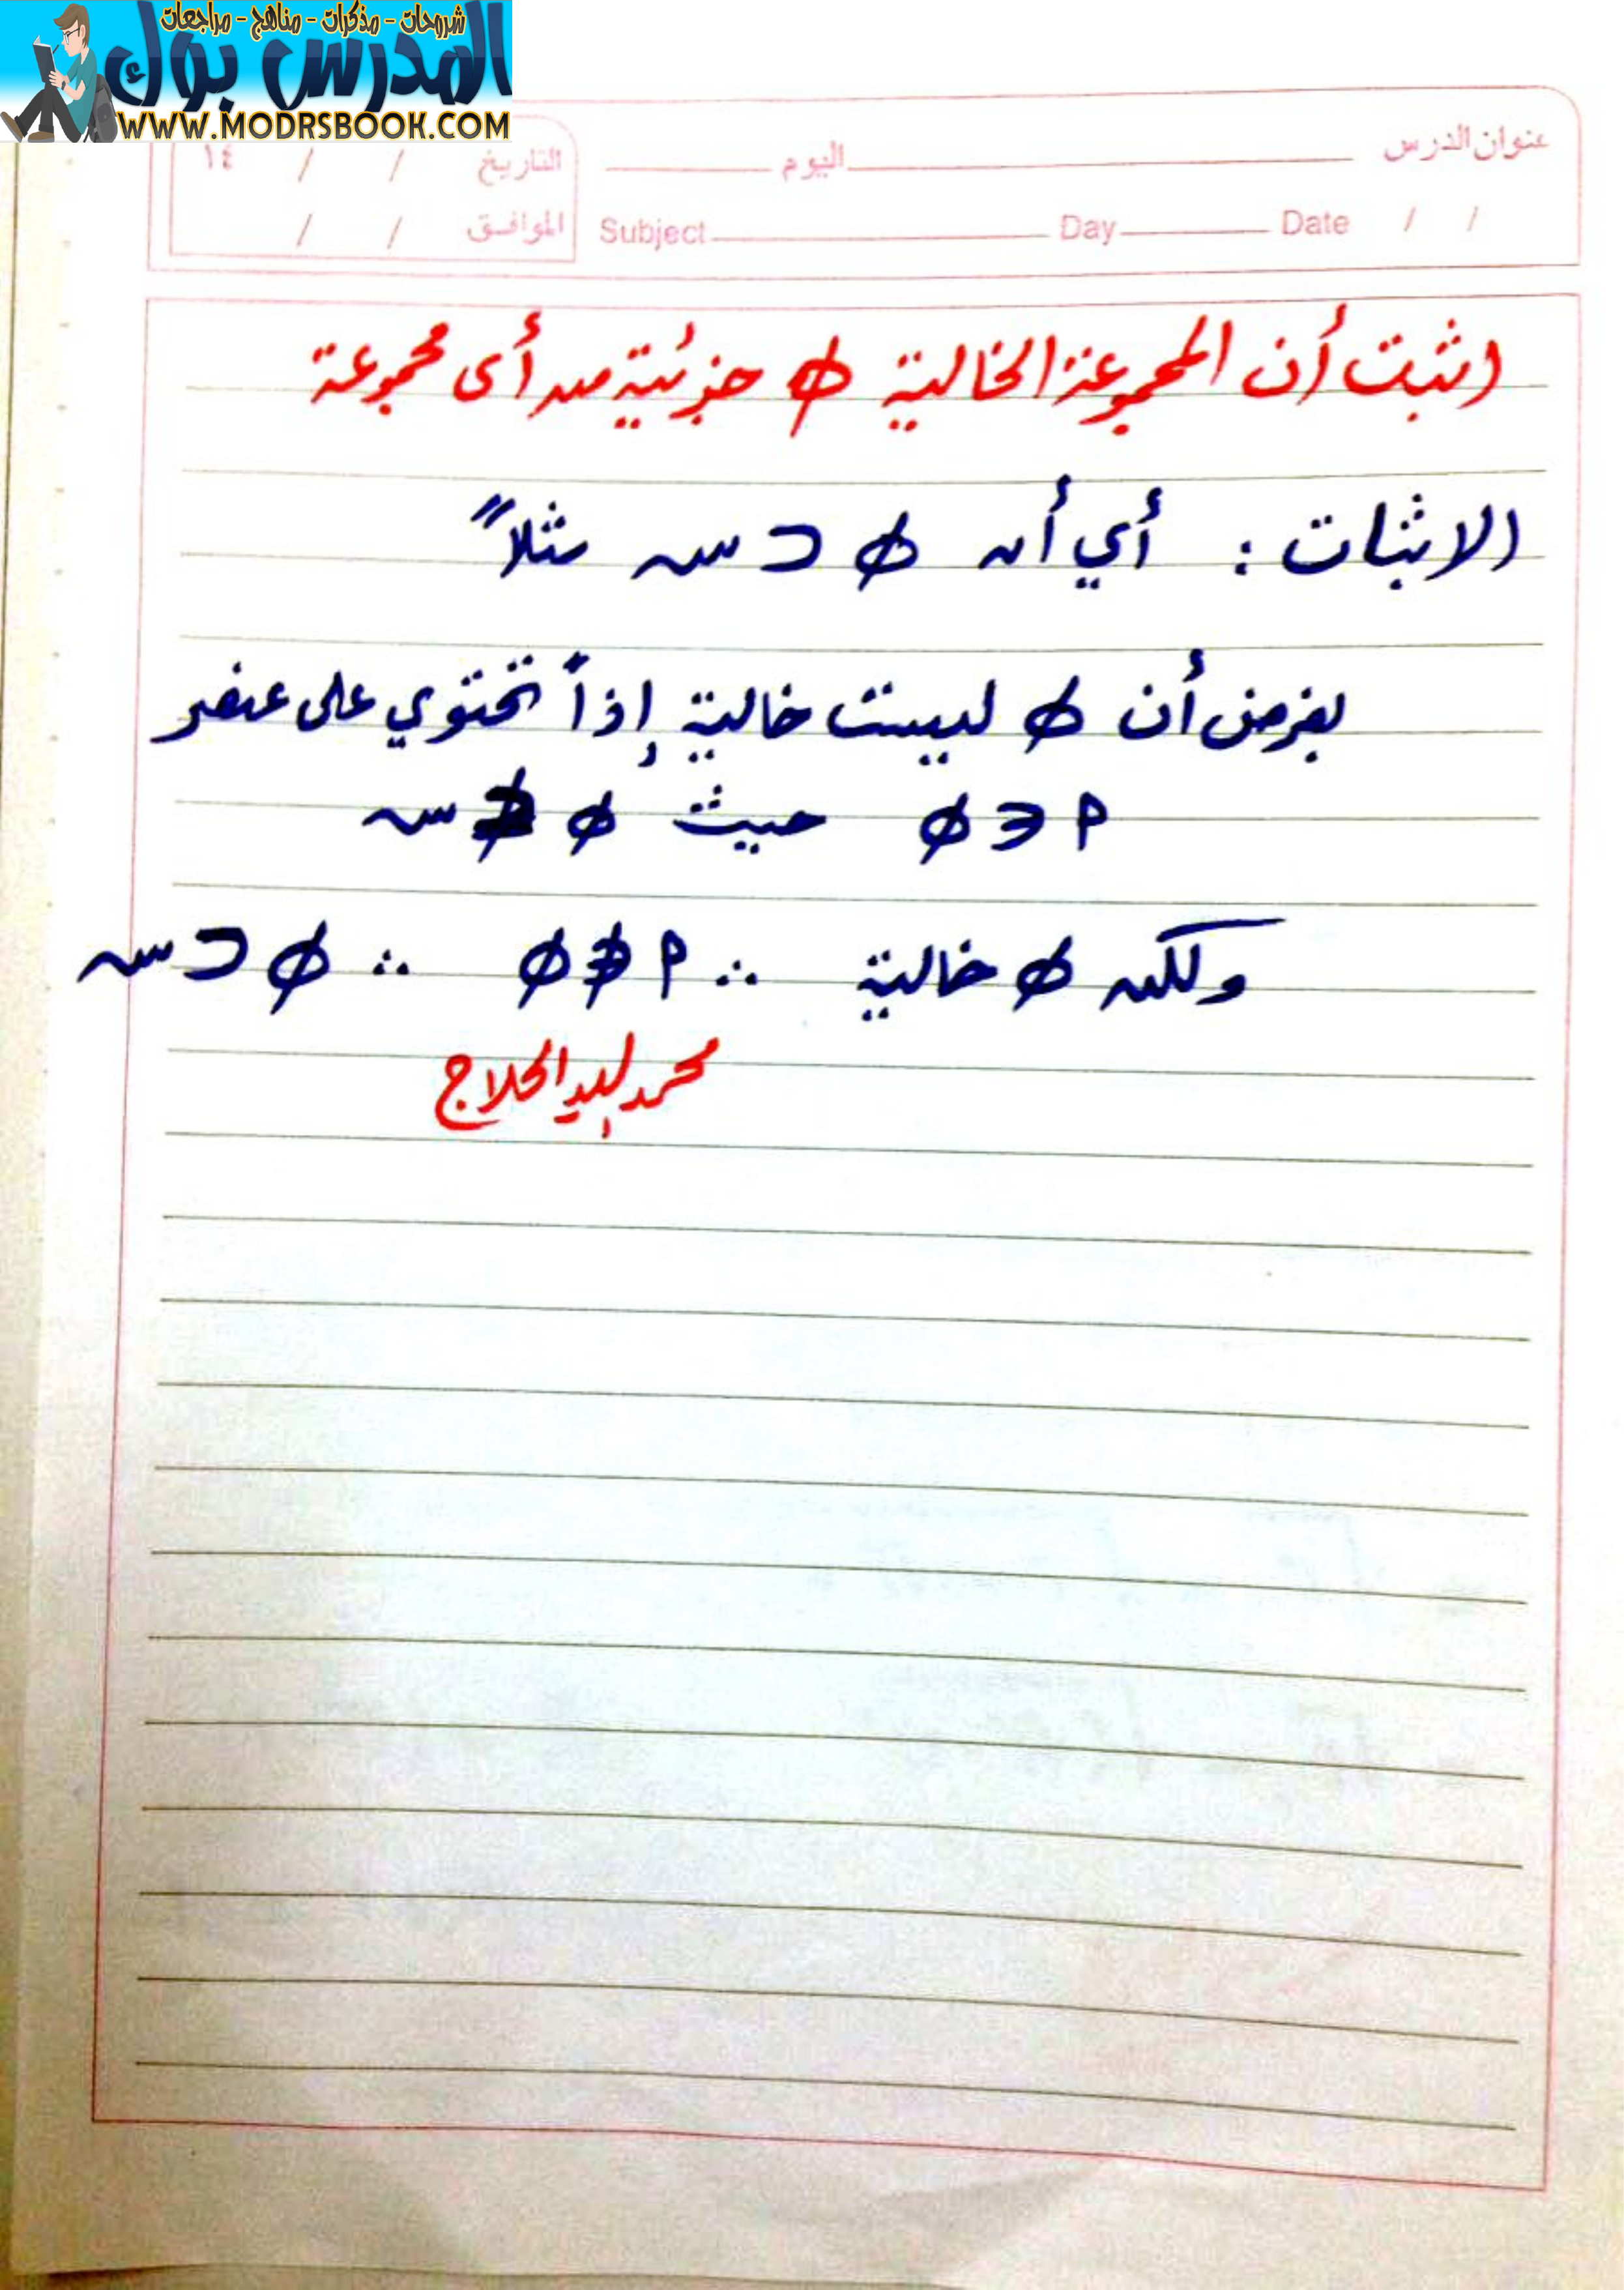 شروحات - مذكرات - مناهج - مراجعات
المدرس بوك
WWW.MODRSBOOK.COM
عنوان الدرس اليوم التاريخ / / ١٤
Date / / Day Subject الموافق / /
اثبت أن المجموعة الخالية ∅ جزئية من أى مجموعة
الاثبات : أي أن ∅ ⊂ س مثلاً
بفرض أن ∅ ليست خالية إذاً تحتوي على عنصر
م ∈ ∅ حيث ∅ ⊄ س
ولكن ∅ خالية ∴ م ∉ ∅ ∴ ∅ ⊂ س
محمد الحلاج